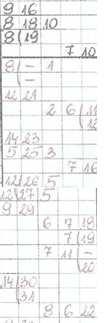 9 16
8 18 10
8 19
7 10
8 - 1
-
12 21
2 6 11
12
14 23
5 25 3
7 16
12 26 5
12 27 5
9 29
6 7 18
7 19
7 11 -
20
14 30
31
8 6 22